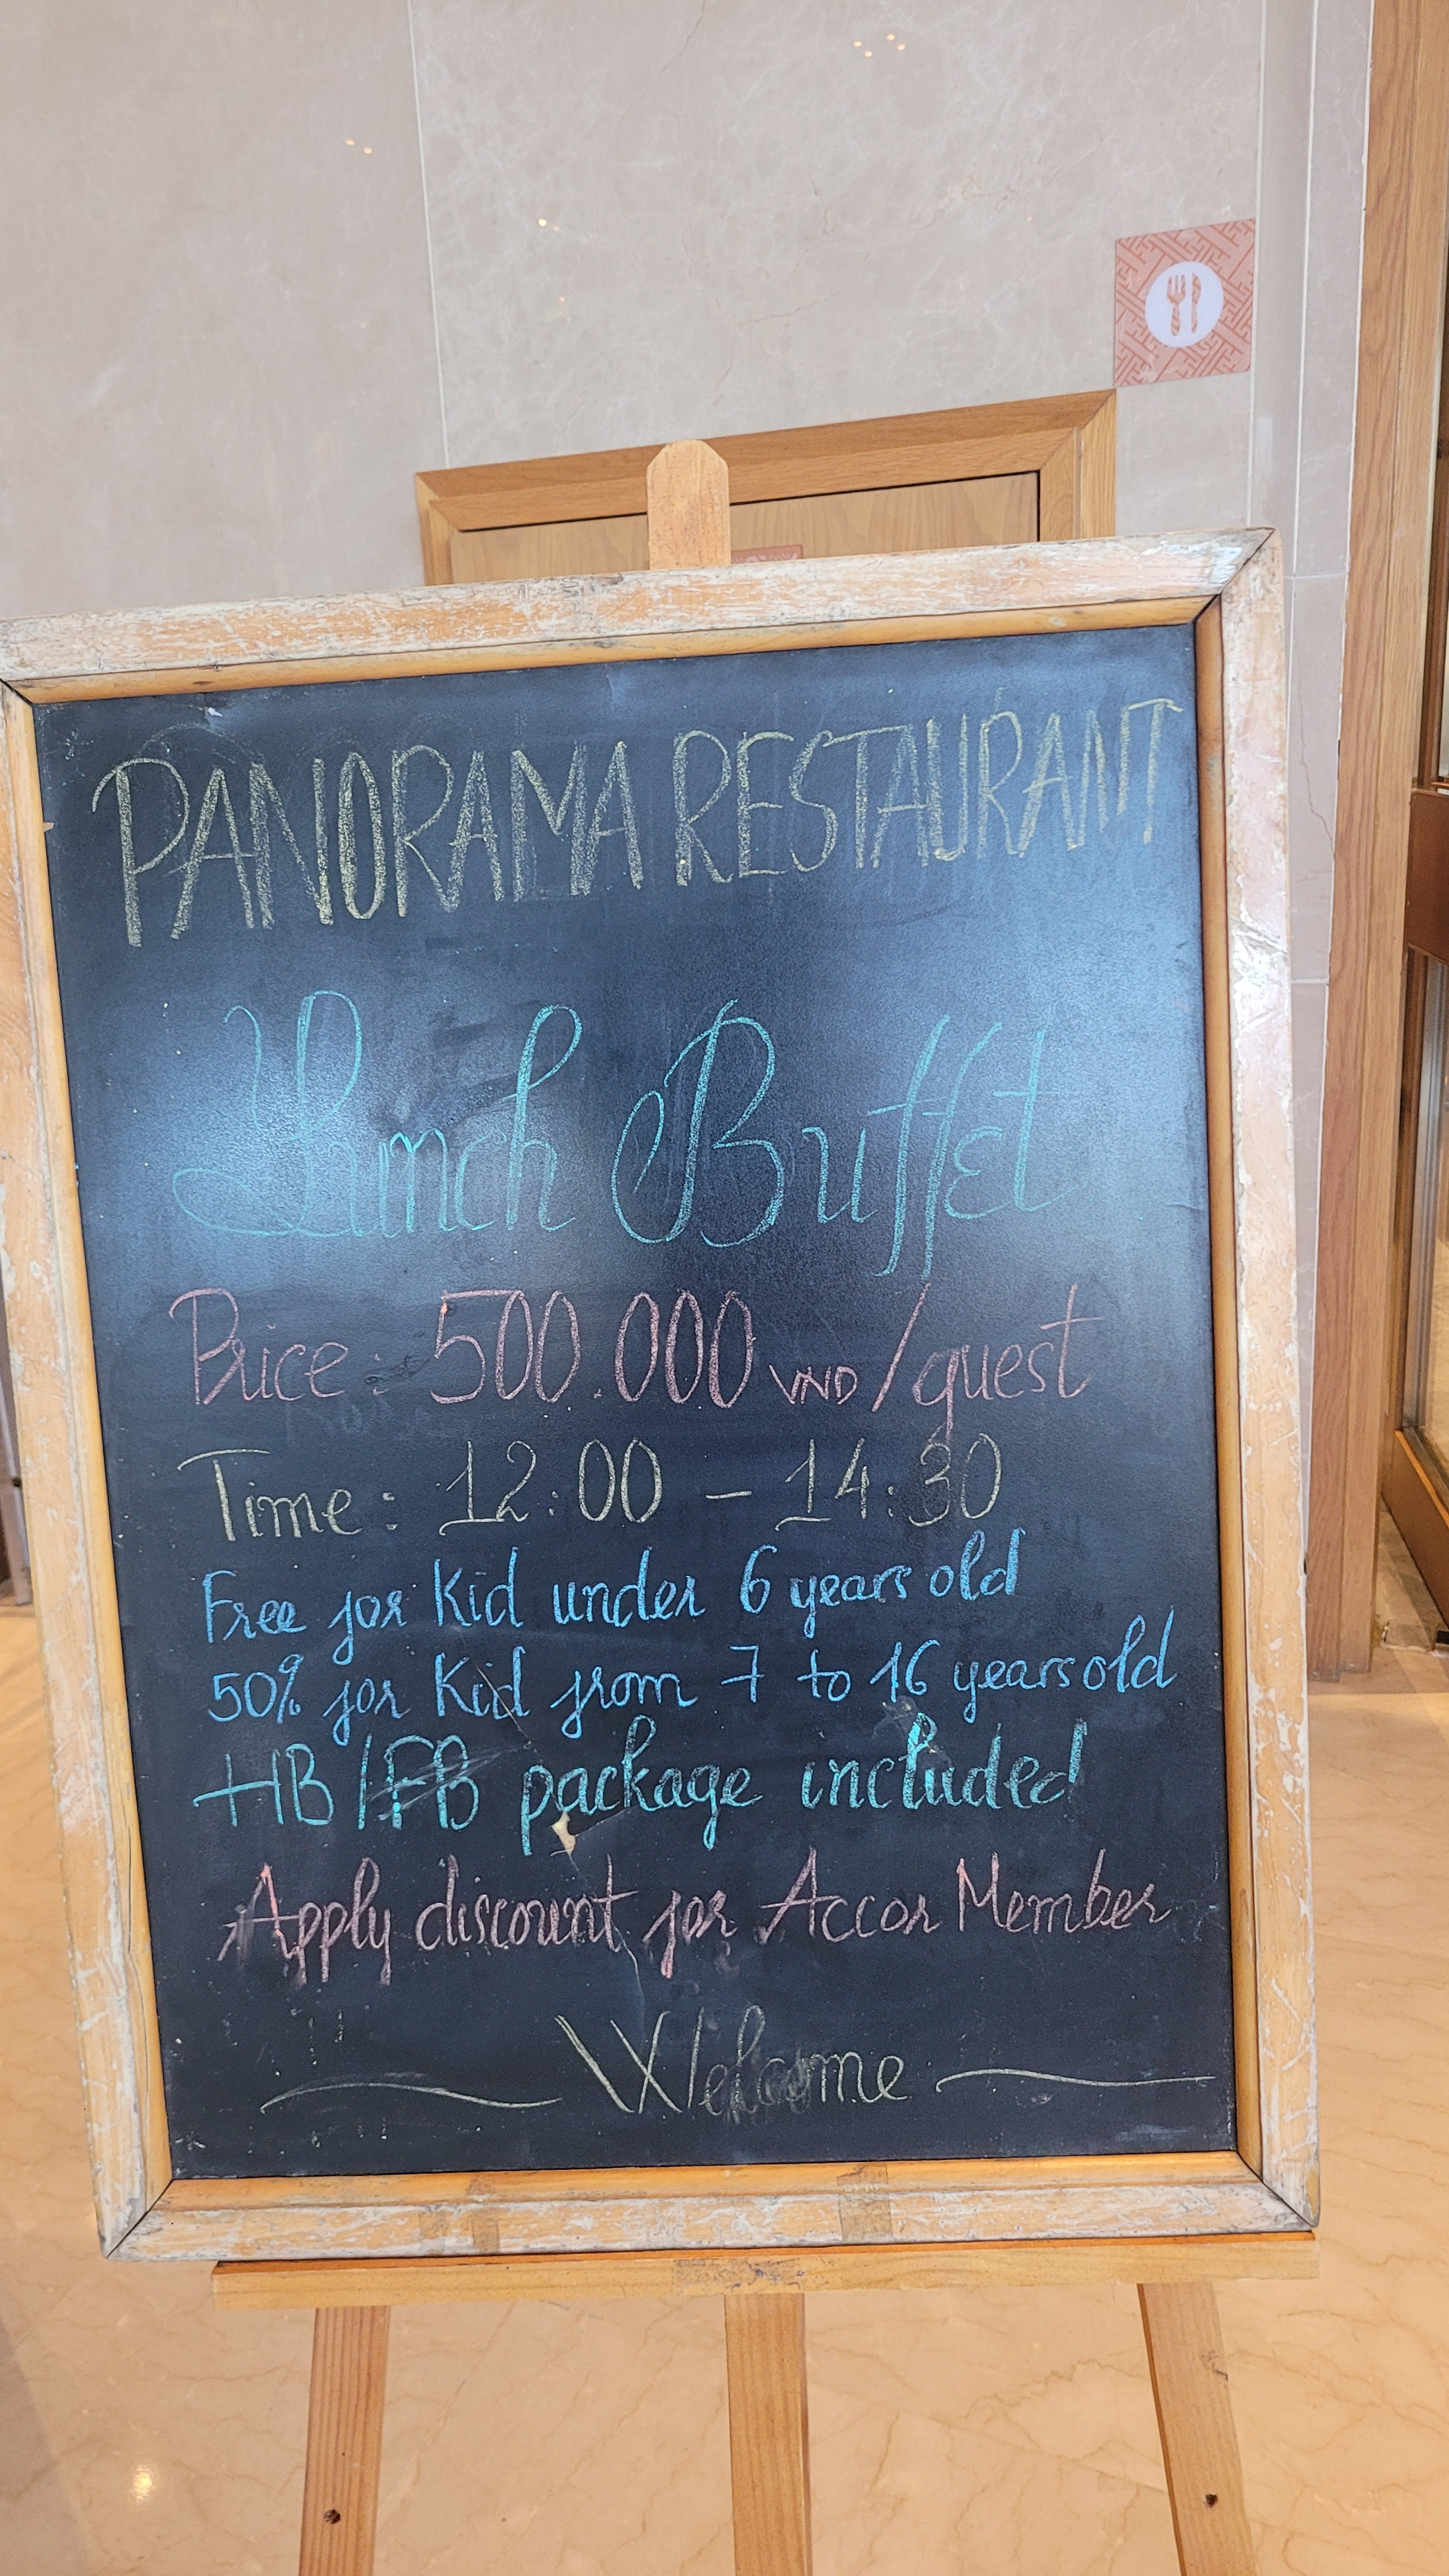 PANORAMA RESTAURANT
Lunch Buffet
Price: 500.000 VND/guest
Time: 12:00 - 14:30
Free for Kid under 6 years old
50% for Kid from 7 to 16 years old
HB/FB package included
Apply discount for Accor Member
Welcome